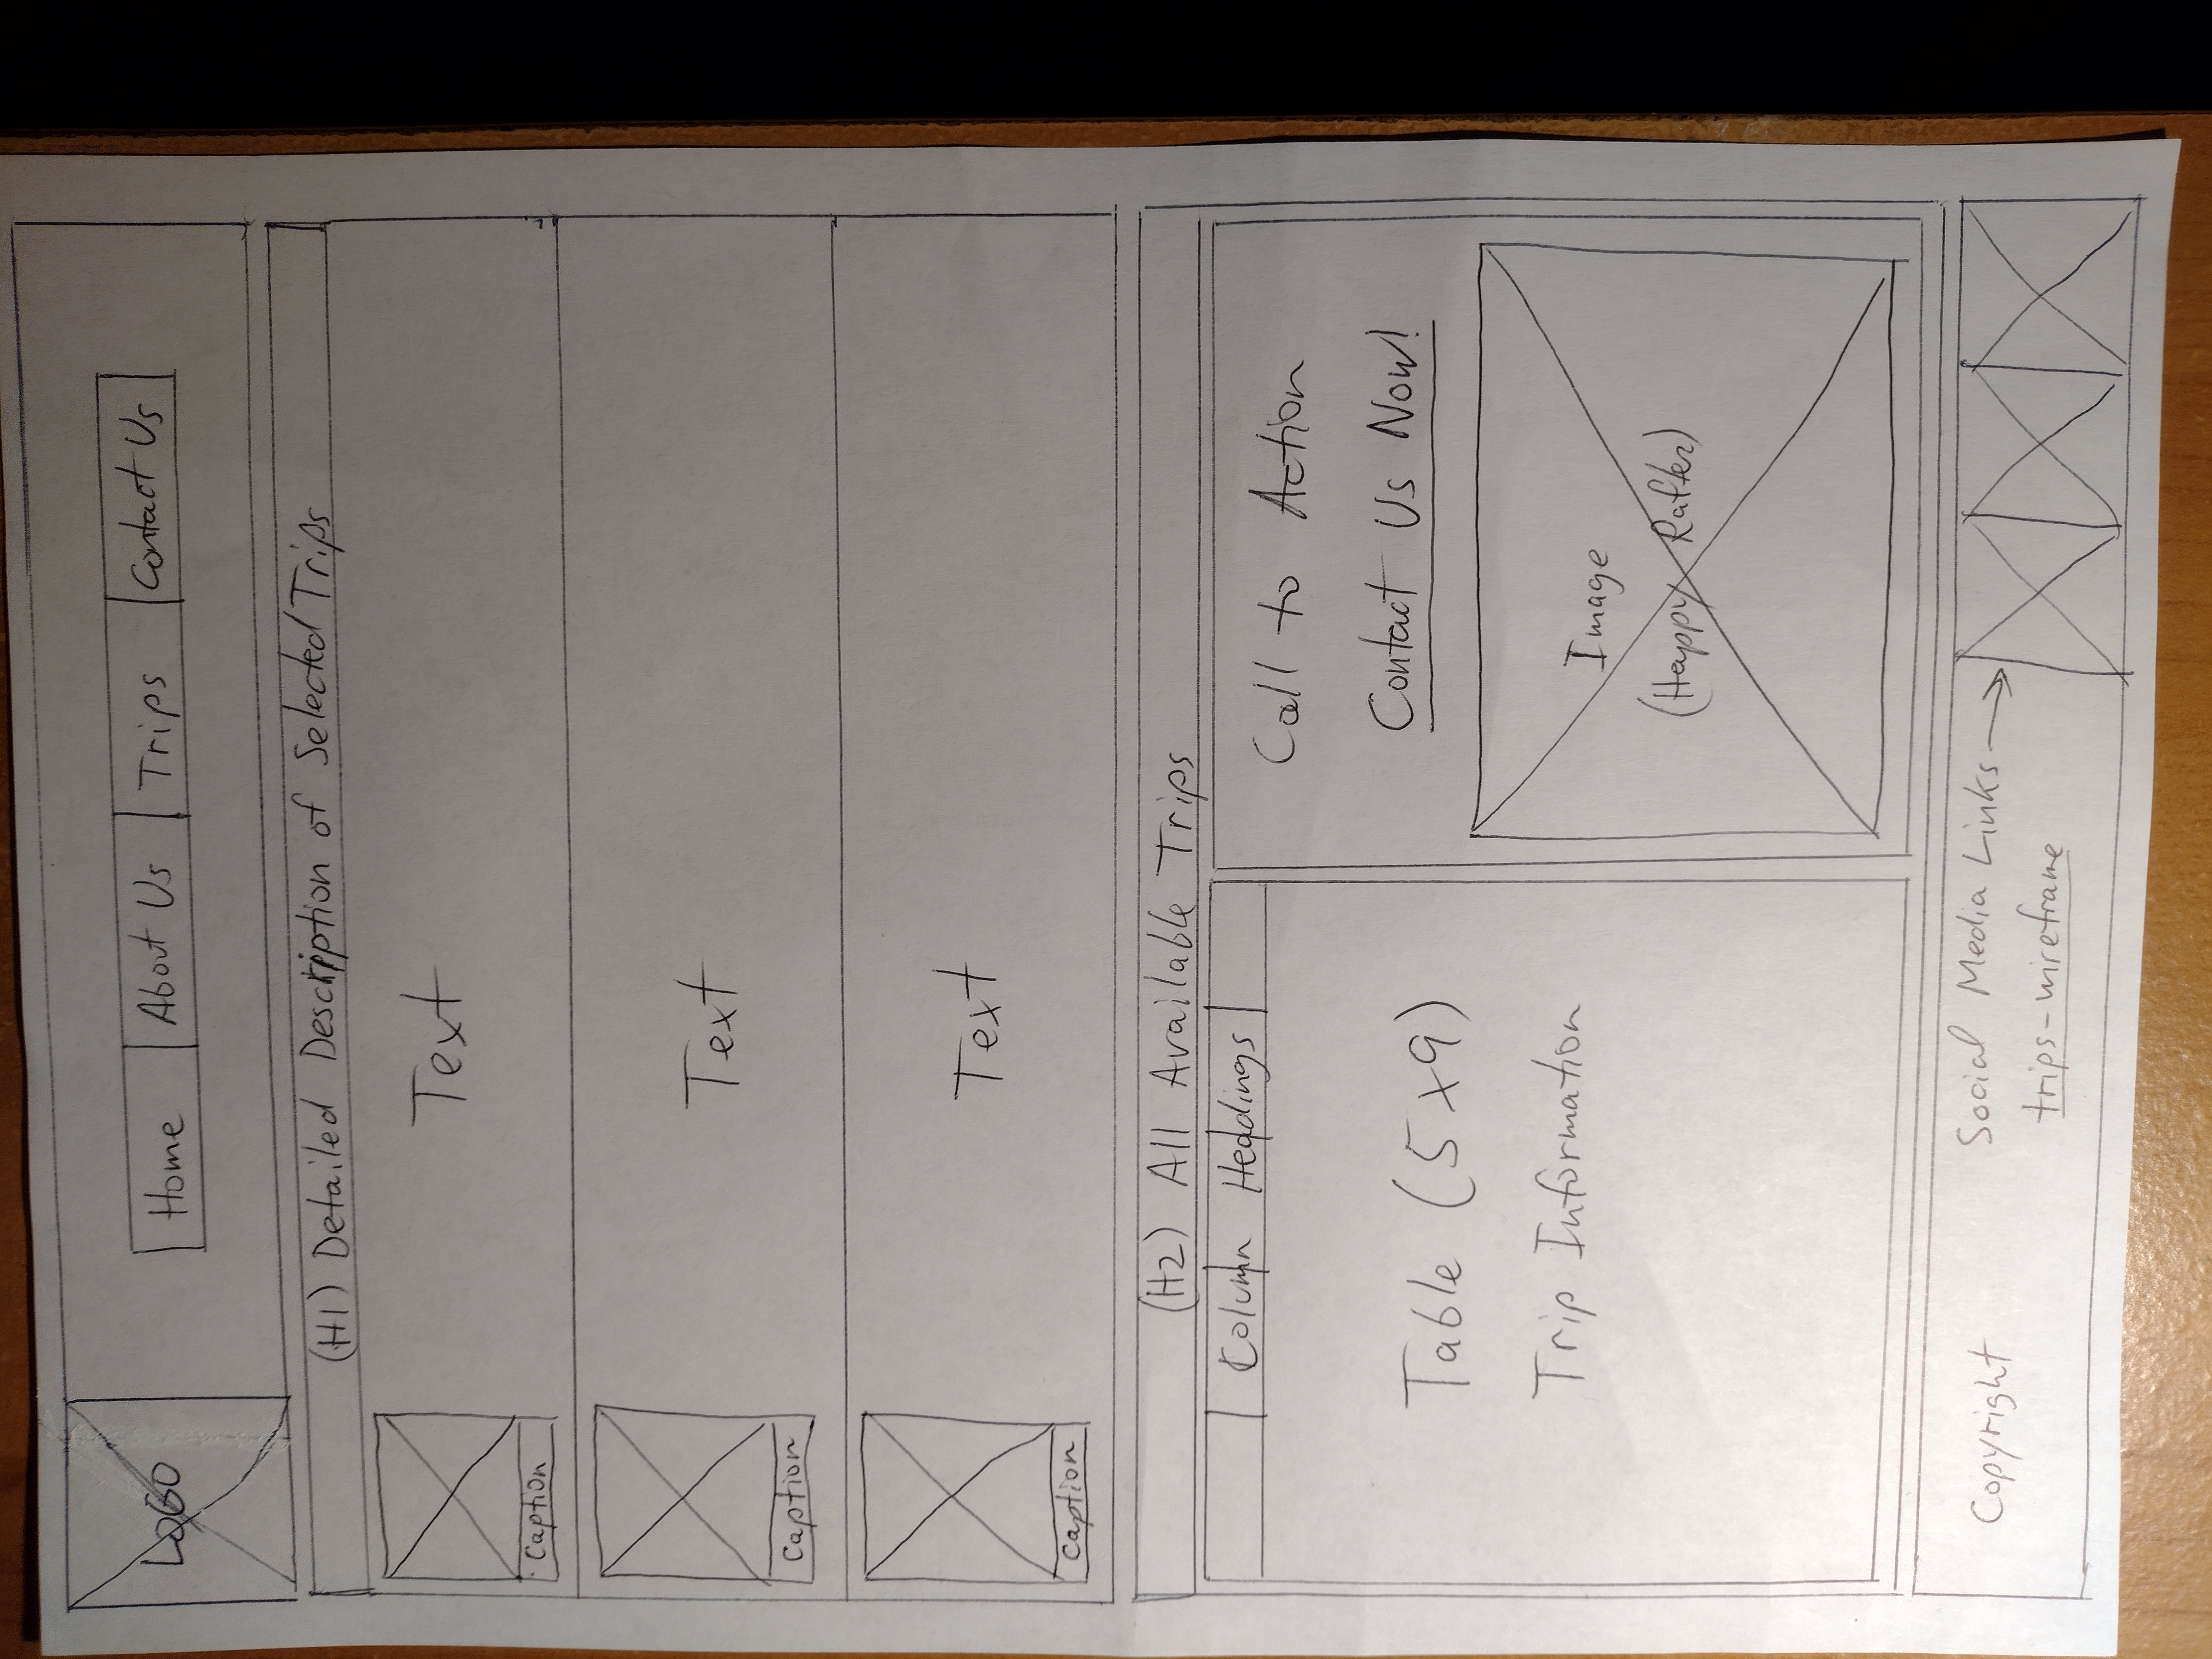 LOGO
Home
About Us
Trips
Contact Us
(H1) Detailed Description of Selected Trips
Text
Caption
Text
Caption
Text
Caption
(H2) All Available Trips
Column Headings
Table (5x9)
Trip Information
Call to Action
Contact Us Now!
Image
(Happy Rafter)
Copyright
Social Media Links
trips-wireframe